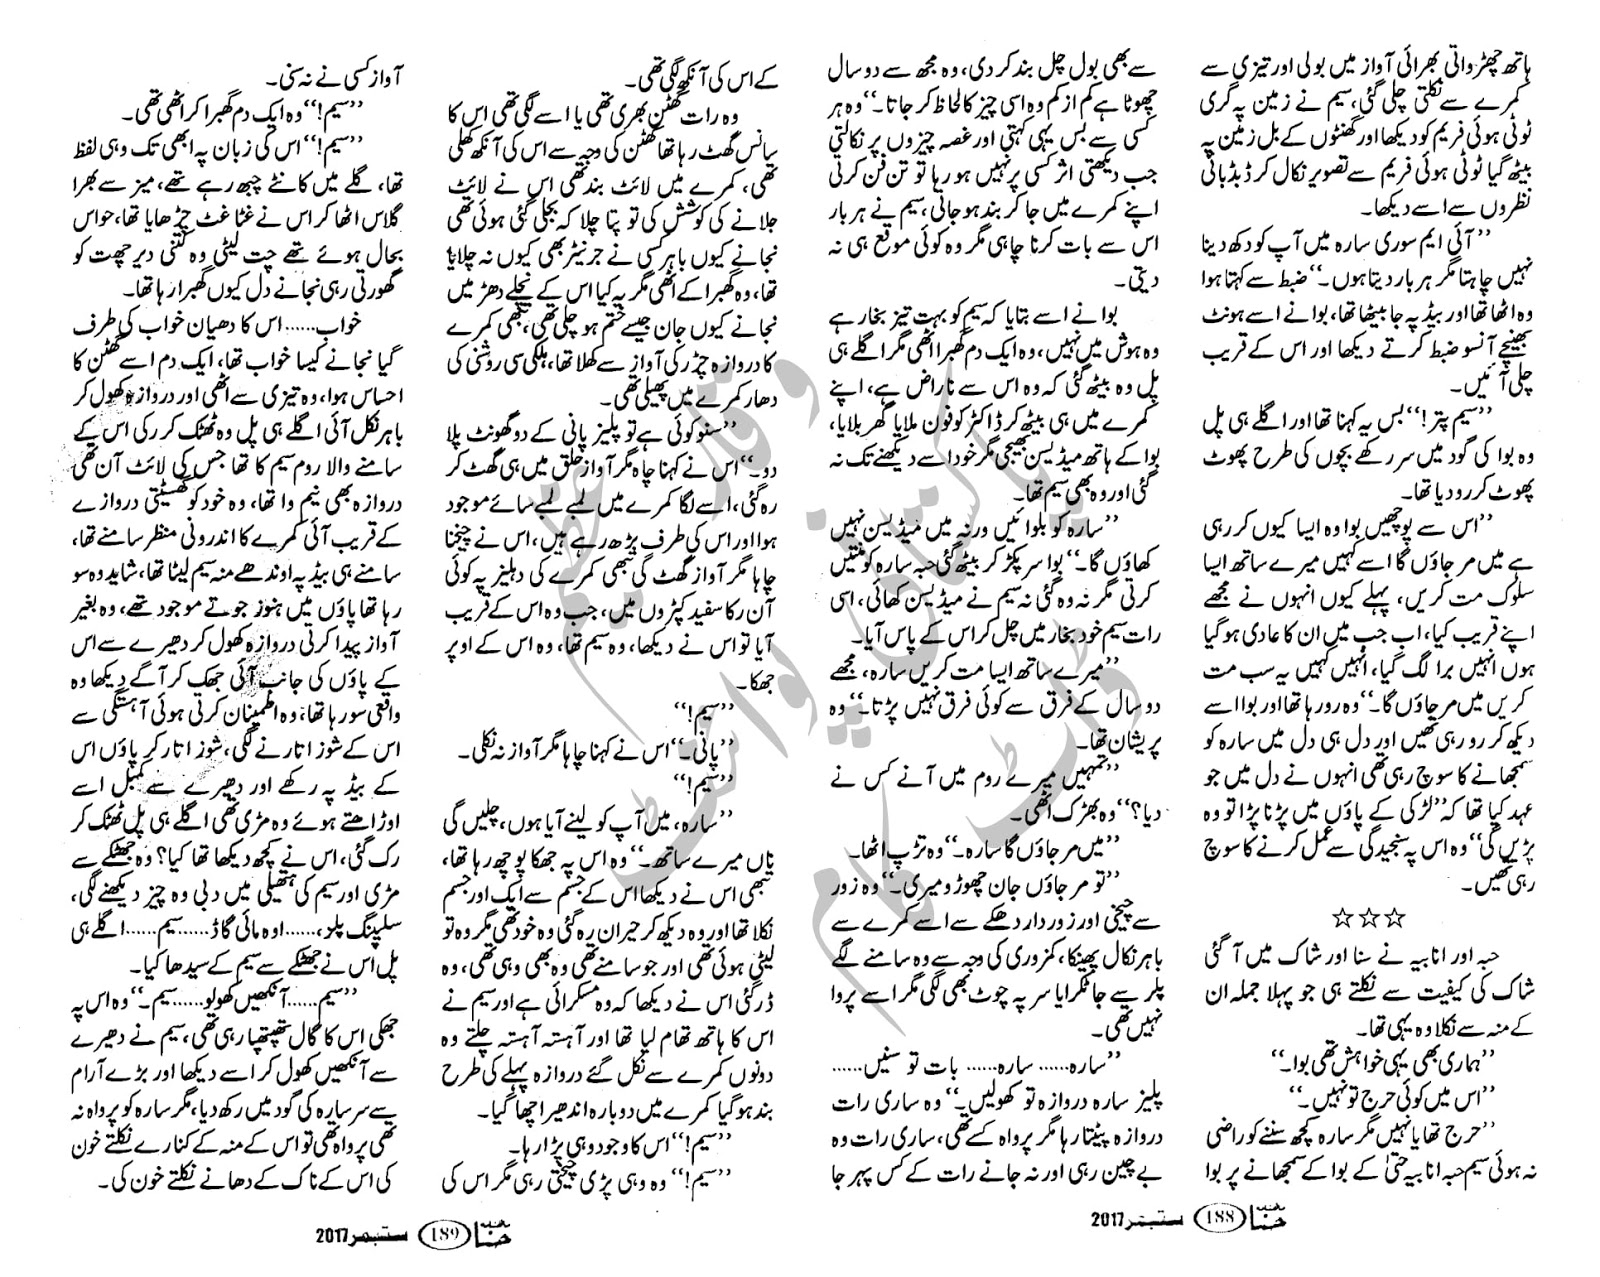 ہاتھ چھڑواتی بھرائی آواز میں بولی اور تیزی سے
کمرے سے نکلتی چلی گئی، سیم نے زمین پہ گری
ٹوٹی ہوئی فریم کو دیکھا اور گھٹنوں کے بل زمین پہ
بیٹھ گیا ٹوٹی ہوئی فریم سے تصویر نکال کر ڈبڈبائی
نظروں سے اسے دیکھا۔
’’آئی ایم سوری سارہ میں آپ کو دکھ دینا
نہیں چاہتا مگر ہر بار دیتا ہوں۔‘‘ ضبط سے کہتا ہوا
وہ اٹھا تھا اور بیڈ پہ جا بیٹھا تھا، بوا نے اسے ہونٹ
بھینچے آنسو ضبط کرتے دیکھا اور اس کے قریب
چلی آئیں۔
’’سیم پتر!‘‘ بس یہ کہنا تھا اور اگلے ہی پل
وہ بوا کی گود میں سر رکھے بچوں کی طرح پھوٹ
پھوٹ کر رو دیا تھا۔
’’اس سے پوچھیں بوا وہ ایسا کیوں کر رہی
ہے میں مر جاؤں گا اسے کہیں میرے ساتھ ایسا
سلوک مت کریں، پہلے کیوں انہوں نے مجھے
اپنے قریب کیا، اب جب میں ان کا عادی ہو گیا
ہوں انہیں برا لگ گیا، انہیں کہیں یہ سب مت
کریں میں مر جاؤں گا۔‘‘ وہ رو رہا تھا اور بوا اسے
دیکھ کر رو رہی تھیں اور دل ہی دل میں سارہ کو
سمجھانے کا سوچ رہی تھی انہوں نے دل میں جو
عہد کیا تھا کہ ’’لڑکی کے پاؤں میں پڑنا پڑا تو وہ
پڑیں گی‘‘ وہ اس پہ سنجیدگی سے عمل کرنے کا سوچ
رہی تھیں۔
☆☆☆
حبہ اور انابیہ نے سنا اور شاک میں آ گئی
شاک کی کیفیت سے نکلتے ہی جو پہلا جملہ ان
کے منہ سے نکلا وہ یہی تھا۔
’’ہماری بھی یہی خواہش تھی بوا۔‘‘
’’اس میں کوئی حرج تو نہیں۔‘‘
’’حرج تھا یا نہیں مگر سارہ کچھ سننے کو راضی
نہ ہوئی سیم حبہ انابیہ حتیٰ کے بوا کے سمجھانے پر بوا
سے بھی بول چل بند کر دی، وہ مجھ سے دو سال
چھوٹا ہے کم از کم وہ اسی چیز کا لحاظ کر جاتا۔‘‘ وہ ہر
کسی سے بس یہی کہتی اور غصہ چیزوں پر نکالتی
جب دیکھتی اثر کسی پر نہیں ہو رہا تو تن فن کرتی
اپنے کمرے میں جا کر بند ہو جاتی، سیم نے ہر بار
اس سے بات کرنا چاہی مگر وہ کوئی موقع ہی نہ
دیتی۔
بوا نے اسے بتایا کہ سیم کو بہت تیز بخار ہے
وہ ہوش میں نہیں، وہ ایک دم گھبرا اٹھی مگر اگلے ہی
پل وہ بیٹھ گئی کہ وہ اس سے ناراض ہے، اپنے
کمرے میں ہی بیٹھ کر ڈاکٹر کو فون ملایا گھر بلایا،
بوا کے ہاتھ میڈیسن بھیجی مگر خود اسے دیکھنے تک نہ
گئی اور وہ بھی سیم تھا۔
’’سارہ کو بلوائیں ورنہ میں میڈیسن نہیں
کھاؤں گا۔‘‘ بوا سر پکڑ کر بیٹھ گئی حبہ سارہ کو منتیں
کرتی مگر نہ وہ گئی نہ سیم نے میڈیسن کھائی، اسی
رات سیم خود بخار میں چل کر اس کے پاس آیا۔
’’میرے ساتھ ایسا مت کریں سارہ، مجھے
دو سال کے فرق سے کوئی فرق نہیں پڑتا۔‘‘ وہ
پریشان تھا۔
’’تمہیں میرے روم میں آنے کس نے
دیا؟‘‘ وہ بھڑک اٹھی۔
’’میں مر جاؤں گا سارہ۔‘‘ وہ تڑپ اٹھا۔
’’تو مر جاؤں جان چھوڑو میری۔‘‘ وہ زور
سے چیخی اور زور دار دھکے سے اسے کمرے سے
باہر نکال پھینکا، کمزوری کی وجہ سے وہ سامنے لگے
پلر سے جا ٹکرایا سر پہ چوٹ بھی لگی مگر اسے پروا
نہیں تھی۔
’’سارہ...... سارہ...... بات تو سنیں......
پلیز سارہ دروازہ تو کھولیں۔‘‘ وہ ساری رات
دروازہ پیٹتا رہا مگر پرواہ کسے تھی، ساری رات وہ
بے چین رہی اور نہ جانے رات کے کس پہر جا
کے اس کی آنکھ لگی تھی۔
وہ رات گھٹن بھری تھی یا اسے لگی تھی اس کا
سانس گھٹ رہا تھا گھٹن کی وجہ سے اس کی آنکھ کھلی
تھی، کمرے میں لائٹ بند تھی اس نے لائٹ
جلانے کی کوشش کی تو پتا چلا کہ بجلی گئی ہوئی تھی
نجانے کیوں باہر کسی نے جرنیٹر بھی کیوں نہ چلایا
تھا، وہ گھبرا کے اٹھی مگر یہ کیا اس کے نچلے دھڑ میں
نجانے کیوں جان جیسے ختم ہو چلی تھی، تبھی کمرے
کا دروازہ چڑ کی آواز سے کھلا تھا، ہلکی سی روشنی کی
دھار کمرے میں پھیلی تھی۔
’’سنو کوئی ہے تو پلیز پانی کے دو گھونٹ پلا
دو۔‘‘ اس نے کہنا چاہ مگر آواز حلق میں ہی گھٹ کر
رہ گئی، اسے لگا کمرے میں لمبے لمبے سائے موجود
ہوا اور اس کی طرف بڑھ رہے ہیں، اس نے چیخنا
چاہا مگر آواز گھٹ گی تبھی کمرے کی دہلیز پہ کوئی
آن رکا سفید کپڑوں میں، جب وہ اس کے قریب
آیا تو اس نے دیکھا، وہ سیم تھا، وہ اس کے اوپر
جھکا۔
’’سیم!‘‘
’’پانی۔‘‘ اس نے کہنا چاہا مگر آواز نہ نکلی۔
’’سیم!‘‘
’’سارہ، میں آپ کو لینے آیا ہوں، چلیں گی
ناں میرے ساتھ۔‘‘ وہ اس پہ جھکا پوچھ رہا تھا،
تبھی اس نے دیکھا اس کے جسم سے ایک اور جسم
نکلا تھا اور وہ دیکھ کر حیران رہ گئی وہ خود تھی مگر وہ تو
لیٹی ہوئی تھی اور جو سامنے تھی وہ بھی وہی تھی، وہ
ڈر گئی اس نے دیکھا کہ وہ مسکرائی ہے اور سیم نے
اس کا ہاتھ تھام لیا تھا اور آہستہ آہستہ چلتے وہ
دونوں کمرے سے نکل گئے دروازہ پہلے کی طرح
بند ہو گیا کمرے میں دوبارہ اندھیرا چھا گیا۔
’’سیم!‘‘ اس کا وجود وہی پڑا رہا۔
’’سیم!‘‘ وہ وہی پڑی چیختی رہی مگر اس کی
آواز کسی نے نہ سنی۔
’’سیم!‘‘ وہ ایک دم گھبرا کر اٹھی تھی۔
’’سیم!‘‘ اس کی زبان پہ ابھی تک وہی لفظ
تھا، گلے میں کانٹے چبھ رہے تھے، میز سے بھرا
گلاس اٹھا کر اس نے غٹا غٹ چڑھایا تھا، حواس
بحال ہوئے تھے چت لیٹی وہ کتنی دیر چھت کو
گھورتی رہی نجانے دل کیوں گھبرا رہا تھا۔
خواب...... اس کا دھیان خواب کی طرف
گیا نجانے کیسا خواب تھا، ایک دم اسے گھٹن کا
احساس ہوا، وہ تیزی سے اٹھی اور دروازہ کھول کر
باہر نکل آئی اگلے ہی پل وہ ٹھٹک کر رکی اس کے
سامنے والا روم سیم کا تھا جس کی لائٹ آن تھی
دروازہ بھی نیم وا تھا، وہ خود کو گھسیٹتی دروازے
کے قریب آئی کمرے کا اندرونی منظر سامنے تھا،
سامنے ہی بیڈ پہ اوندھے منہ سیم لیٹا تھا، شاید وہ سو
رہا تھا پاؤں میں ہنوز جوتے موجود تھے، وہ بغیر
آواز پیدا کرتی دروازہ کھول کر دھیرے سے اس
کے پاؤں کی جانب آئی جھک کر آگے دیکھا وہ
واقعی سو رہا تھا، وہ اطمینان کرتی ہوئی آہستگی سے
اس کے شوز اتارنے لگی، شوز اتار کر پاؤں اس
کے بیڈ پہ رکھے اور دھیرے سے کمبل اسے
اوڑاھتے ہوئے وہ مڑی تھی اگلے ہی پل ٹھٹک کر
رک گئی، اس نے کچھ دیکھا تھا کیا؟ وہ جھٹکے سے
مڑی اور سیم کی ہتھیلی میں دبی وہ چیز دیکھنے لگی،
سلپنگ پلو،...... اوہ مائی گاڈ...... سیم...... اگلے ہی
پل اس نے جھٹکے سے سیم کے سیدھا کیا۔
’’سیم...... آنکھیں کھولو...... سیم۔‘‘ وہ اس پہ
جھکی اس کا گال تھپتھپا رہی تھی، سیم نے دھیرے
سے آنکھیں کھول کر اسے دیکھا اور بڑے آرام
سے سر سارہ کی گود میں رکھ دیا، مگر سارہ کو پرواہ نہ
تھی پرواہ تھی تو اس کے منہ کے کنارے نکلتے خون
کی اس کے ناک کے دھانے نکلتے خون کی۔
حنا 188 ستمبر 2017
حنا 189 ستمبر 2017
پاکستانی پوائنٹ
ڈاٹ کام
وقار عظیم